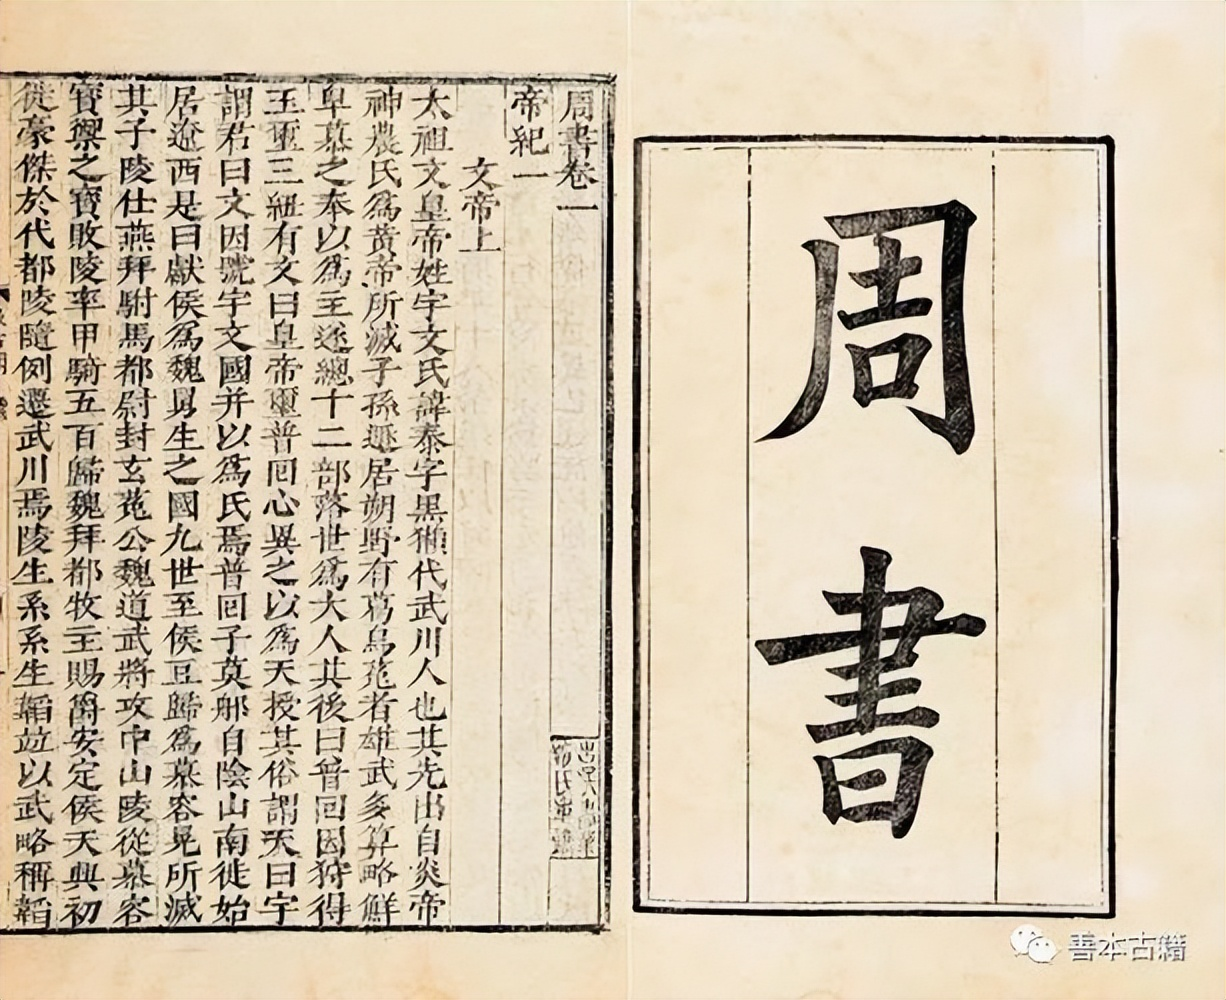 周書
周書卷一
帝紀一
文帝上
太祖文皇帝姓宇文氏諱泰字黑獺代武川人也其先出自炎帝
神農氏爲黃帝所滅子孫遯居朔野有葛烏菟者雄武多算略鮮
卑慕之奉以爲主遂總十二部落世爲大人其後曰普回因狩得
玉璽三紐有文曰皇帝璽普回心異之以爲天授其俗謂天曰宇
謂君曰文因號宇文國并以爲氏焉普回子莫那自陰山南徙始
居遼西是曰獻侯爲魏舅生之國九世至侯豆歸爲慕容晃所滅
其子陵仕燕拜駙馬都尉封玄菟公魏道武將攻中山陵從慕容
寶禦之寶敗陵率甲騎五百歸魏拜都牧主賜爵安定侯天興初
徙豪傑於代都陵隨例遷武川焉陵生系系生韜竝以武略稱韜
善本古籍